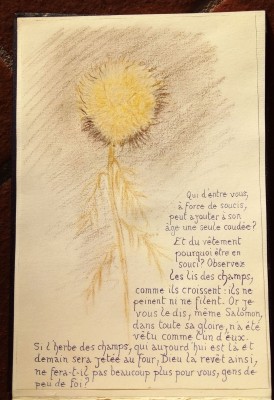 Qui d'entre vous,
à force de soucis,
peut ajouter à son
âge une seule coudée?
Et du vêtement
pourquoi être en
souci? Observez
les lis des champs,
comme ils croissent: ils ne
peinent ni ne filent. Or je
vous le dis, même Salomon,
dans toute sa gloire, n'a été
vêtu comme l'un d'eux.
Si l'herbe des champs, qui aujourd'hui est là et
demain sera jetée au four, Dieu la revêt ainsi,
ne fera-t-il pas beaucoup plus pour vous, gens de
peu de foi?